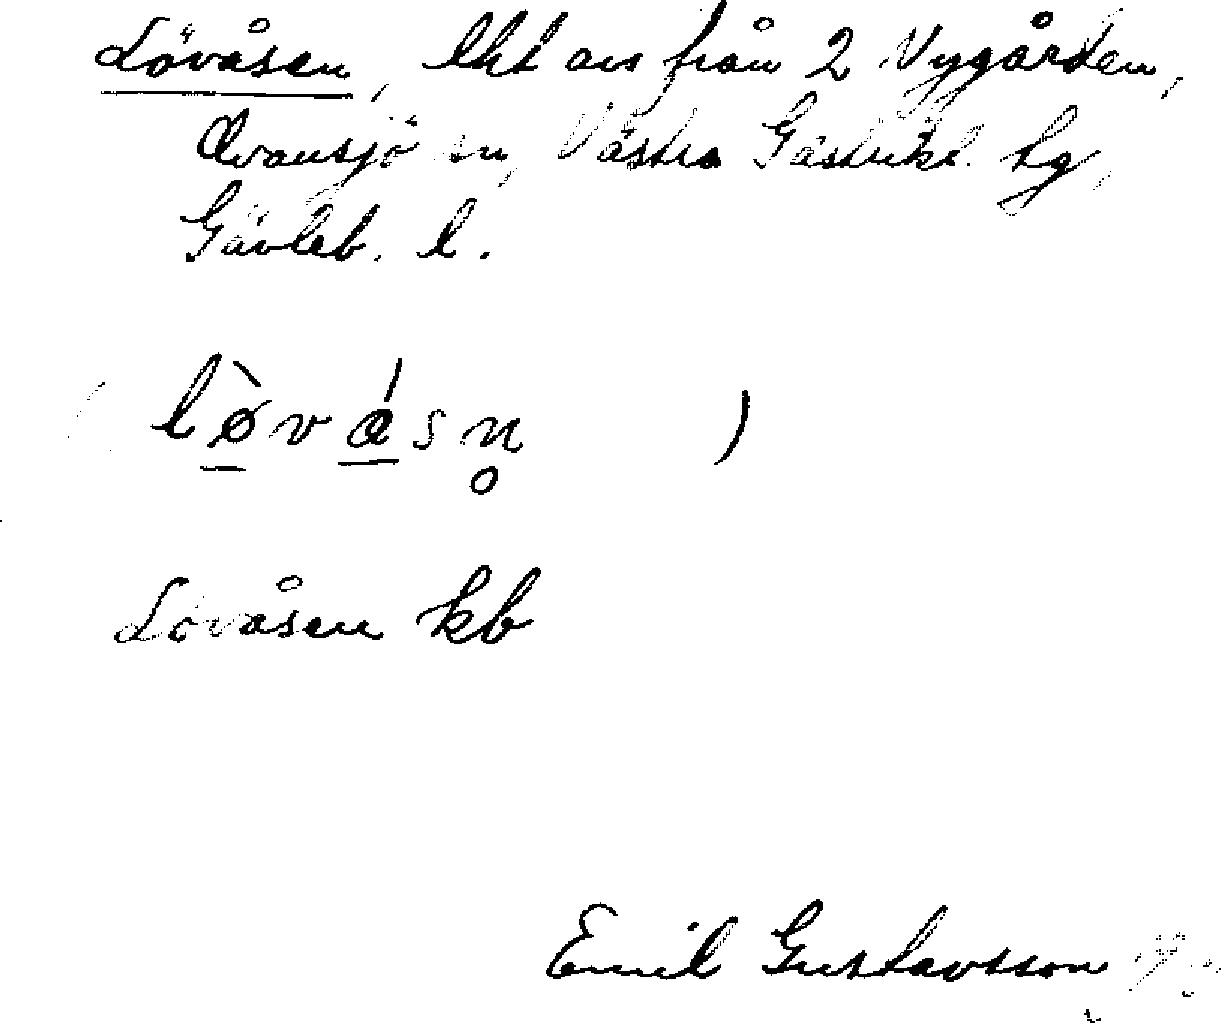 Lövåsen, lht avs från 2 Nygården,
Ovansjö sn, Västra Gästrikl. tg,
Gävleb. l.
( lø̀vásn̥ )
Lövåsen kb
Emil Gustavsson